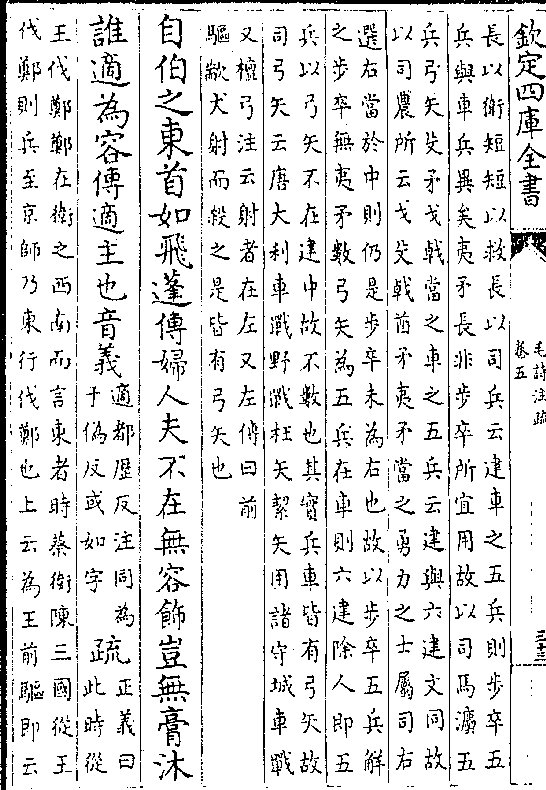 欽定四庫全書
毛詩注疏
卷五
三十三
長以衛短短以救長以司兵云建車之五兵則步卒五
兵與車兵異矣夷矛長非步卒所宜用故以司馬灋五
兵弓矢殳矛戈戟當之車之五兵云建與六建文同故
以司農所云戈殳戟酋矛夷矛當之勇力之士屬司右
選右當於中則仍是步卒未為右也故以步卒五兵解
之步卒無夷矛數弓矢為五兵在車則六建除人即五
兵以弓矢不在建中故不數也其實兵車皆有弓矢故
司弓矢云唐大利車戰野戰枉矢絜矢用諸守城車戰
又檀弓注云射者在左又左傳曰前
驅歂犬射而殺之是皆有弓矢也
自伯之東首如飛蓬傳婦人夫不在無容飾豈無膏沐
誰適為容傳適主也音義適都歷反注同為于偽反或如字疏正義曰此時從
王伐鄭鄭在衛之西南而言東者時蔡衛陳三國從王
伐鄭則兵至京師乃東行伐鄭也上云為王前驅即云